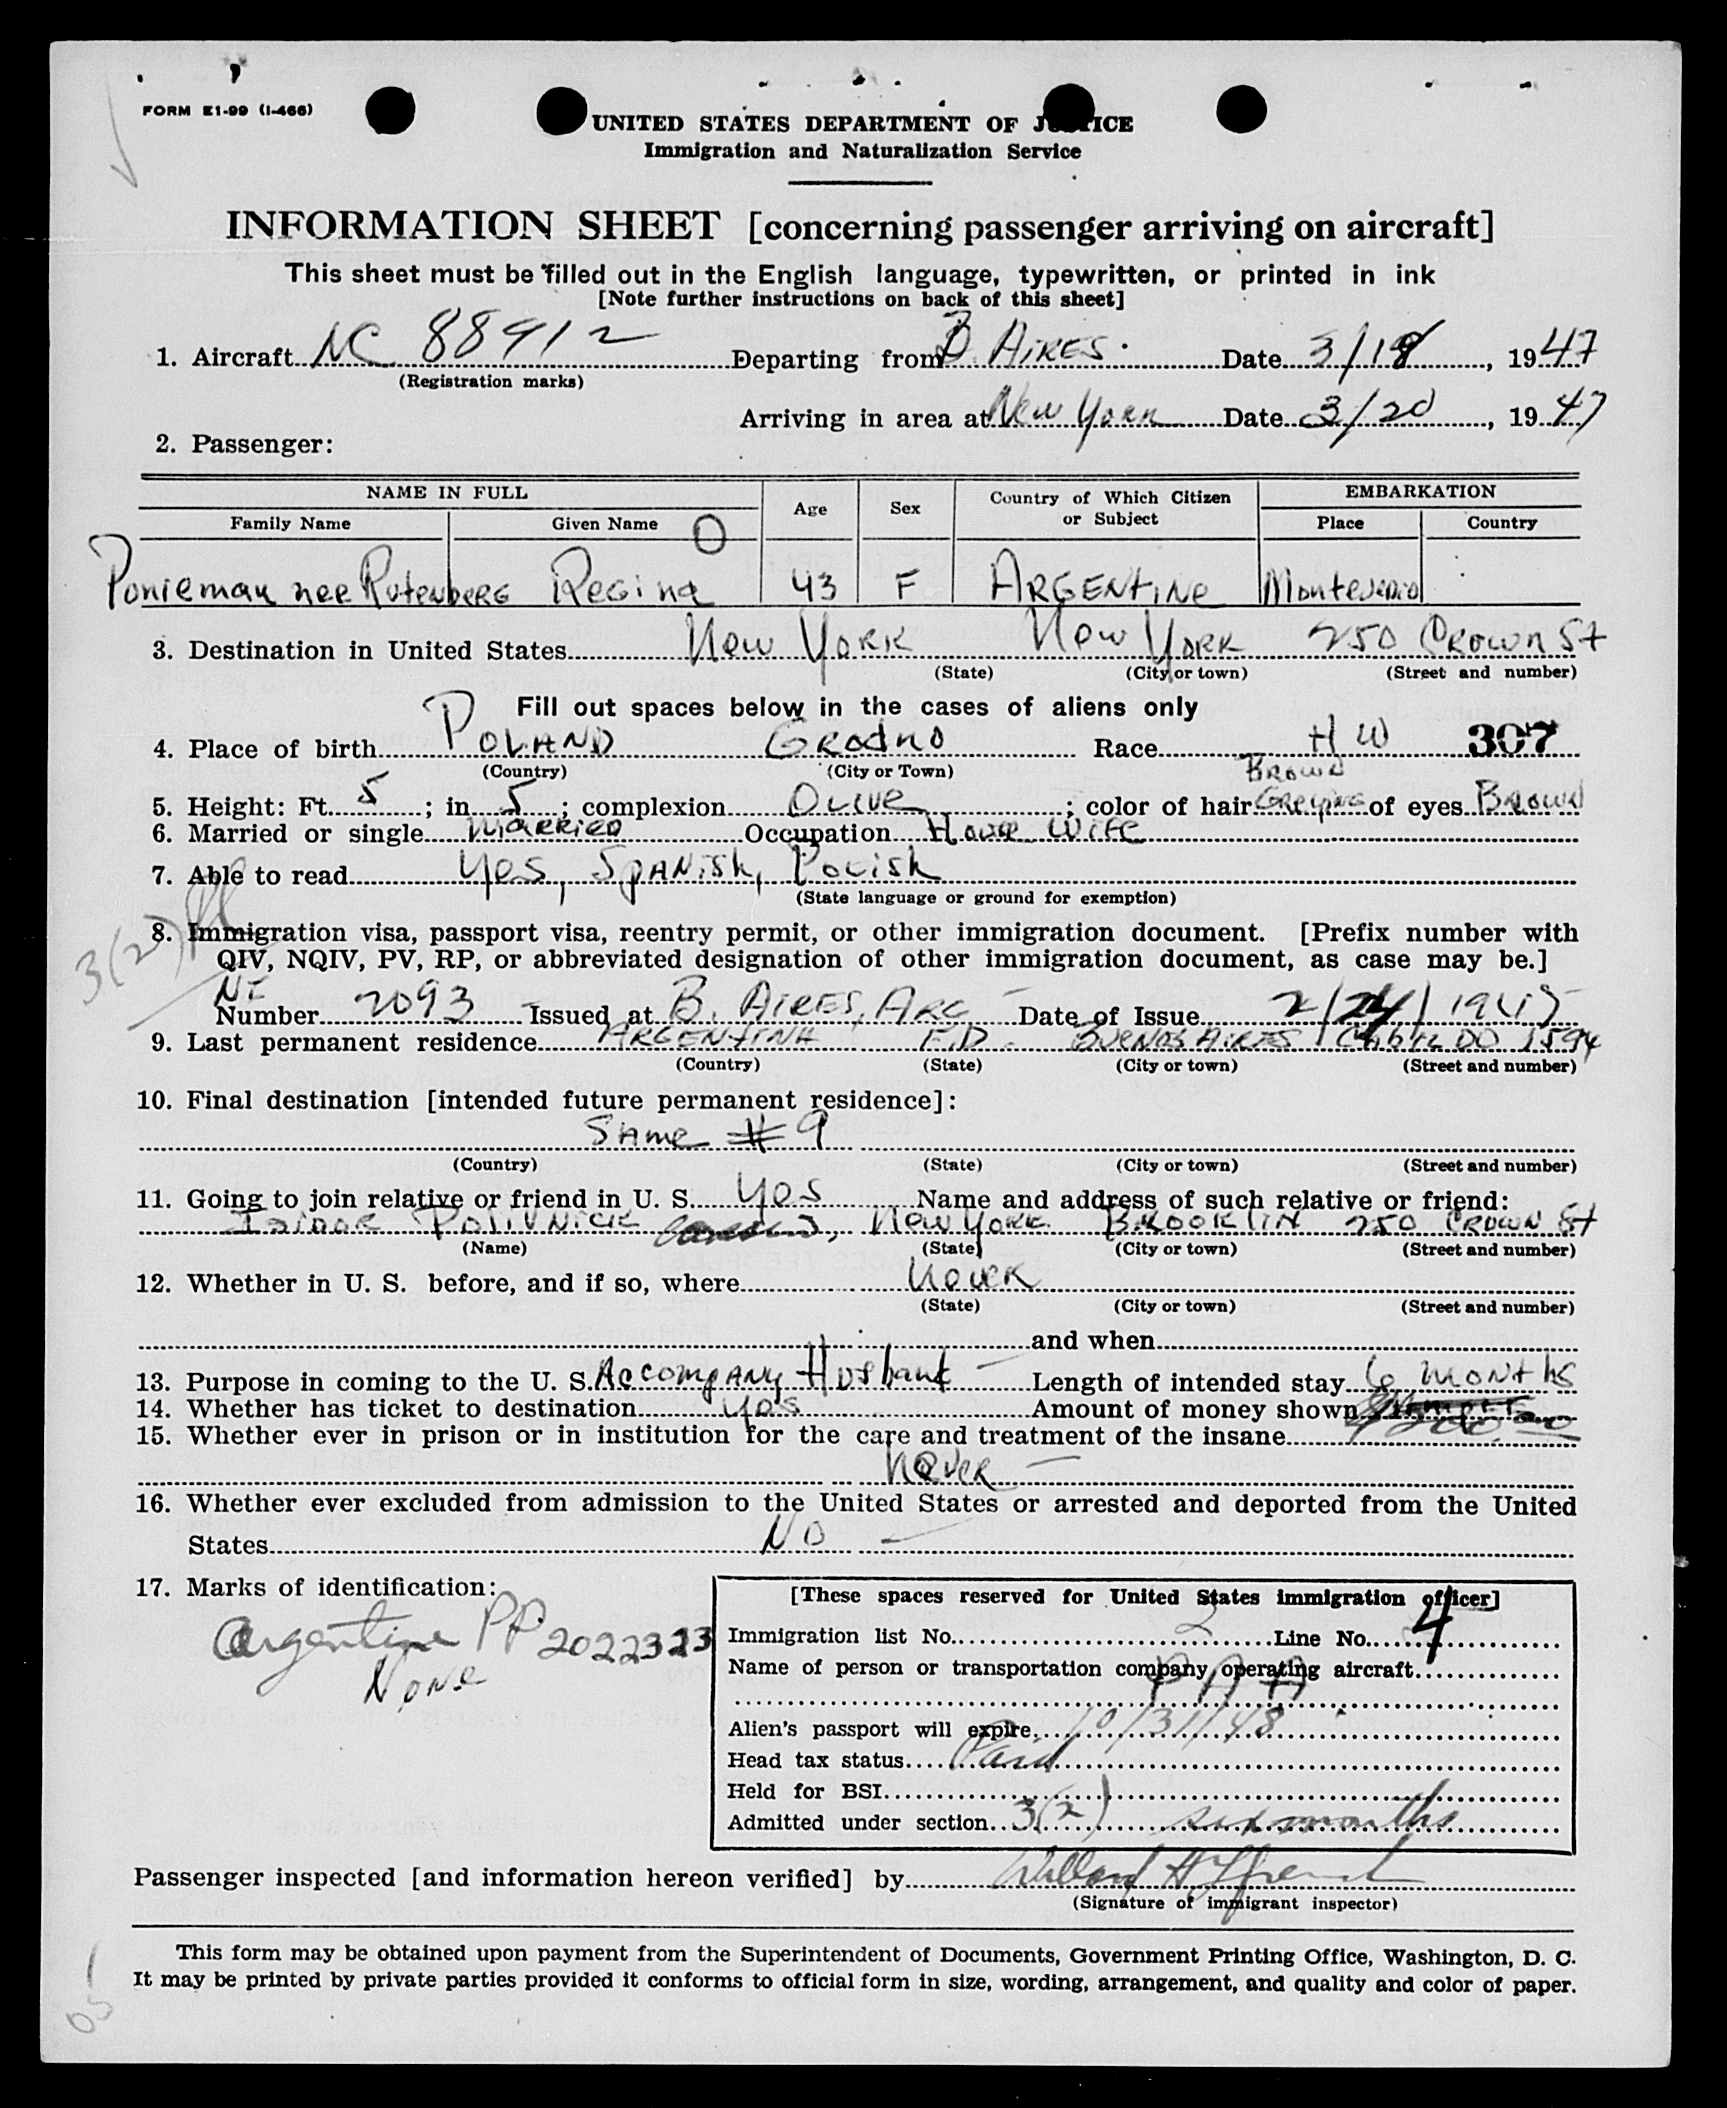 FORM E1-99 (I-466)
UNITED STATES DEPARTMENT OF JUSTICE
Immigration and Naturalization Service
INFORMATION SHEET [concerning passenger arriving on aircraft]
This sheet must be filled out in the English language, typewritten, or printed in ink
[Note further instructions on back of this sheet]
1. Aircraft NC 88912 Departing from B. AIRES. Date 3/18, 1947
(Registration marks)
Arriving in area at New York Date 3/20, 1947
2. Passenger:
NAME IN FULL Age Sex Country of Which Citizen or Subject EMBARKATION
Family Name Given Name O Place Country
Ponieman nee Rotenberg Regina 43 F ARGENTINE Montevideo
3. Destination in United States New York New York 250 Crown St
(State) (City or town) (Street and number)
Fill out spaces below in the cases of aliens only
4. Place of birth POLAND Grodno Race H W 307
(Country) (City or Town)
5. Height: Ft. 5; in. 5; complexion Olive; color of hair Brown Greying of eyes Brown
6. Married or single Married Occupation House Wife
7. Able to read Yes, Spanish, Polish
(State language or ground for exemption)
3(2)
8. Immigration visa, passport visa, reentry permit, or other immigration document. [Prefix number with
QIV, NQIV, PV, RP, or abbreviated designation of other immigration document, as case may be.]
NI
Number 2093 Issued at B. AIRES, ARG — Date of Issue 2/24/19
9. Last permanent residence ARGENTINA F.D. BUENOS AIRES CABILDO 1594
(Country) (State) (City or town) (Street and number)
10. Final destination [intended future permanent residence]:
Same #9
(Country) (State) (City or town) (Street and number)
11. Going to join relative or friend in U. S. Yes Name and address of such relative or friend:
Isidor Polivnick, New York BROOKLIN 250 CROWN St
(Name) (State) (City or town) (Street and number)
12. Whether in U. S. before, and if so, where never
(State) (City or town) (Street and number)
and when
13. Purpose in coming to the U. S. Accompany Husband — Length of intended stay 6 MONTHS
14. Whether has ticket to destination yes Amount of money shown
15. Whether ever in prison or in institution for the care and treatment of the insane
never —
16. Whether ever excluded from admission to the United States or arrested and deported from the United
States NO —
17. Marks of identification:
Argentine PP. 2022323
None
[These spaces reserved for United States immigration officer]
Immigration list No. 2 Line No. 4
Name of person or transportation company operating aircraft
P A A
Alien's passport will expire 10/31/48
Head tax status Paid
Held for BSI
Admitted under section 3(2) six months
Passenger inspected [and information hereon verified] by Willard H
(Signature of immigrant inspector)
This form may be obtained upon payment from the Superintendent of Documents, Government Printing Office, Washington, D. C.
It may be printed by private parties provided it conforms to official form in size, wording, arrangement, and quality and color of paper.